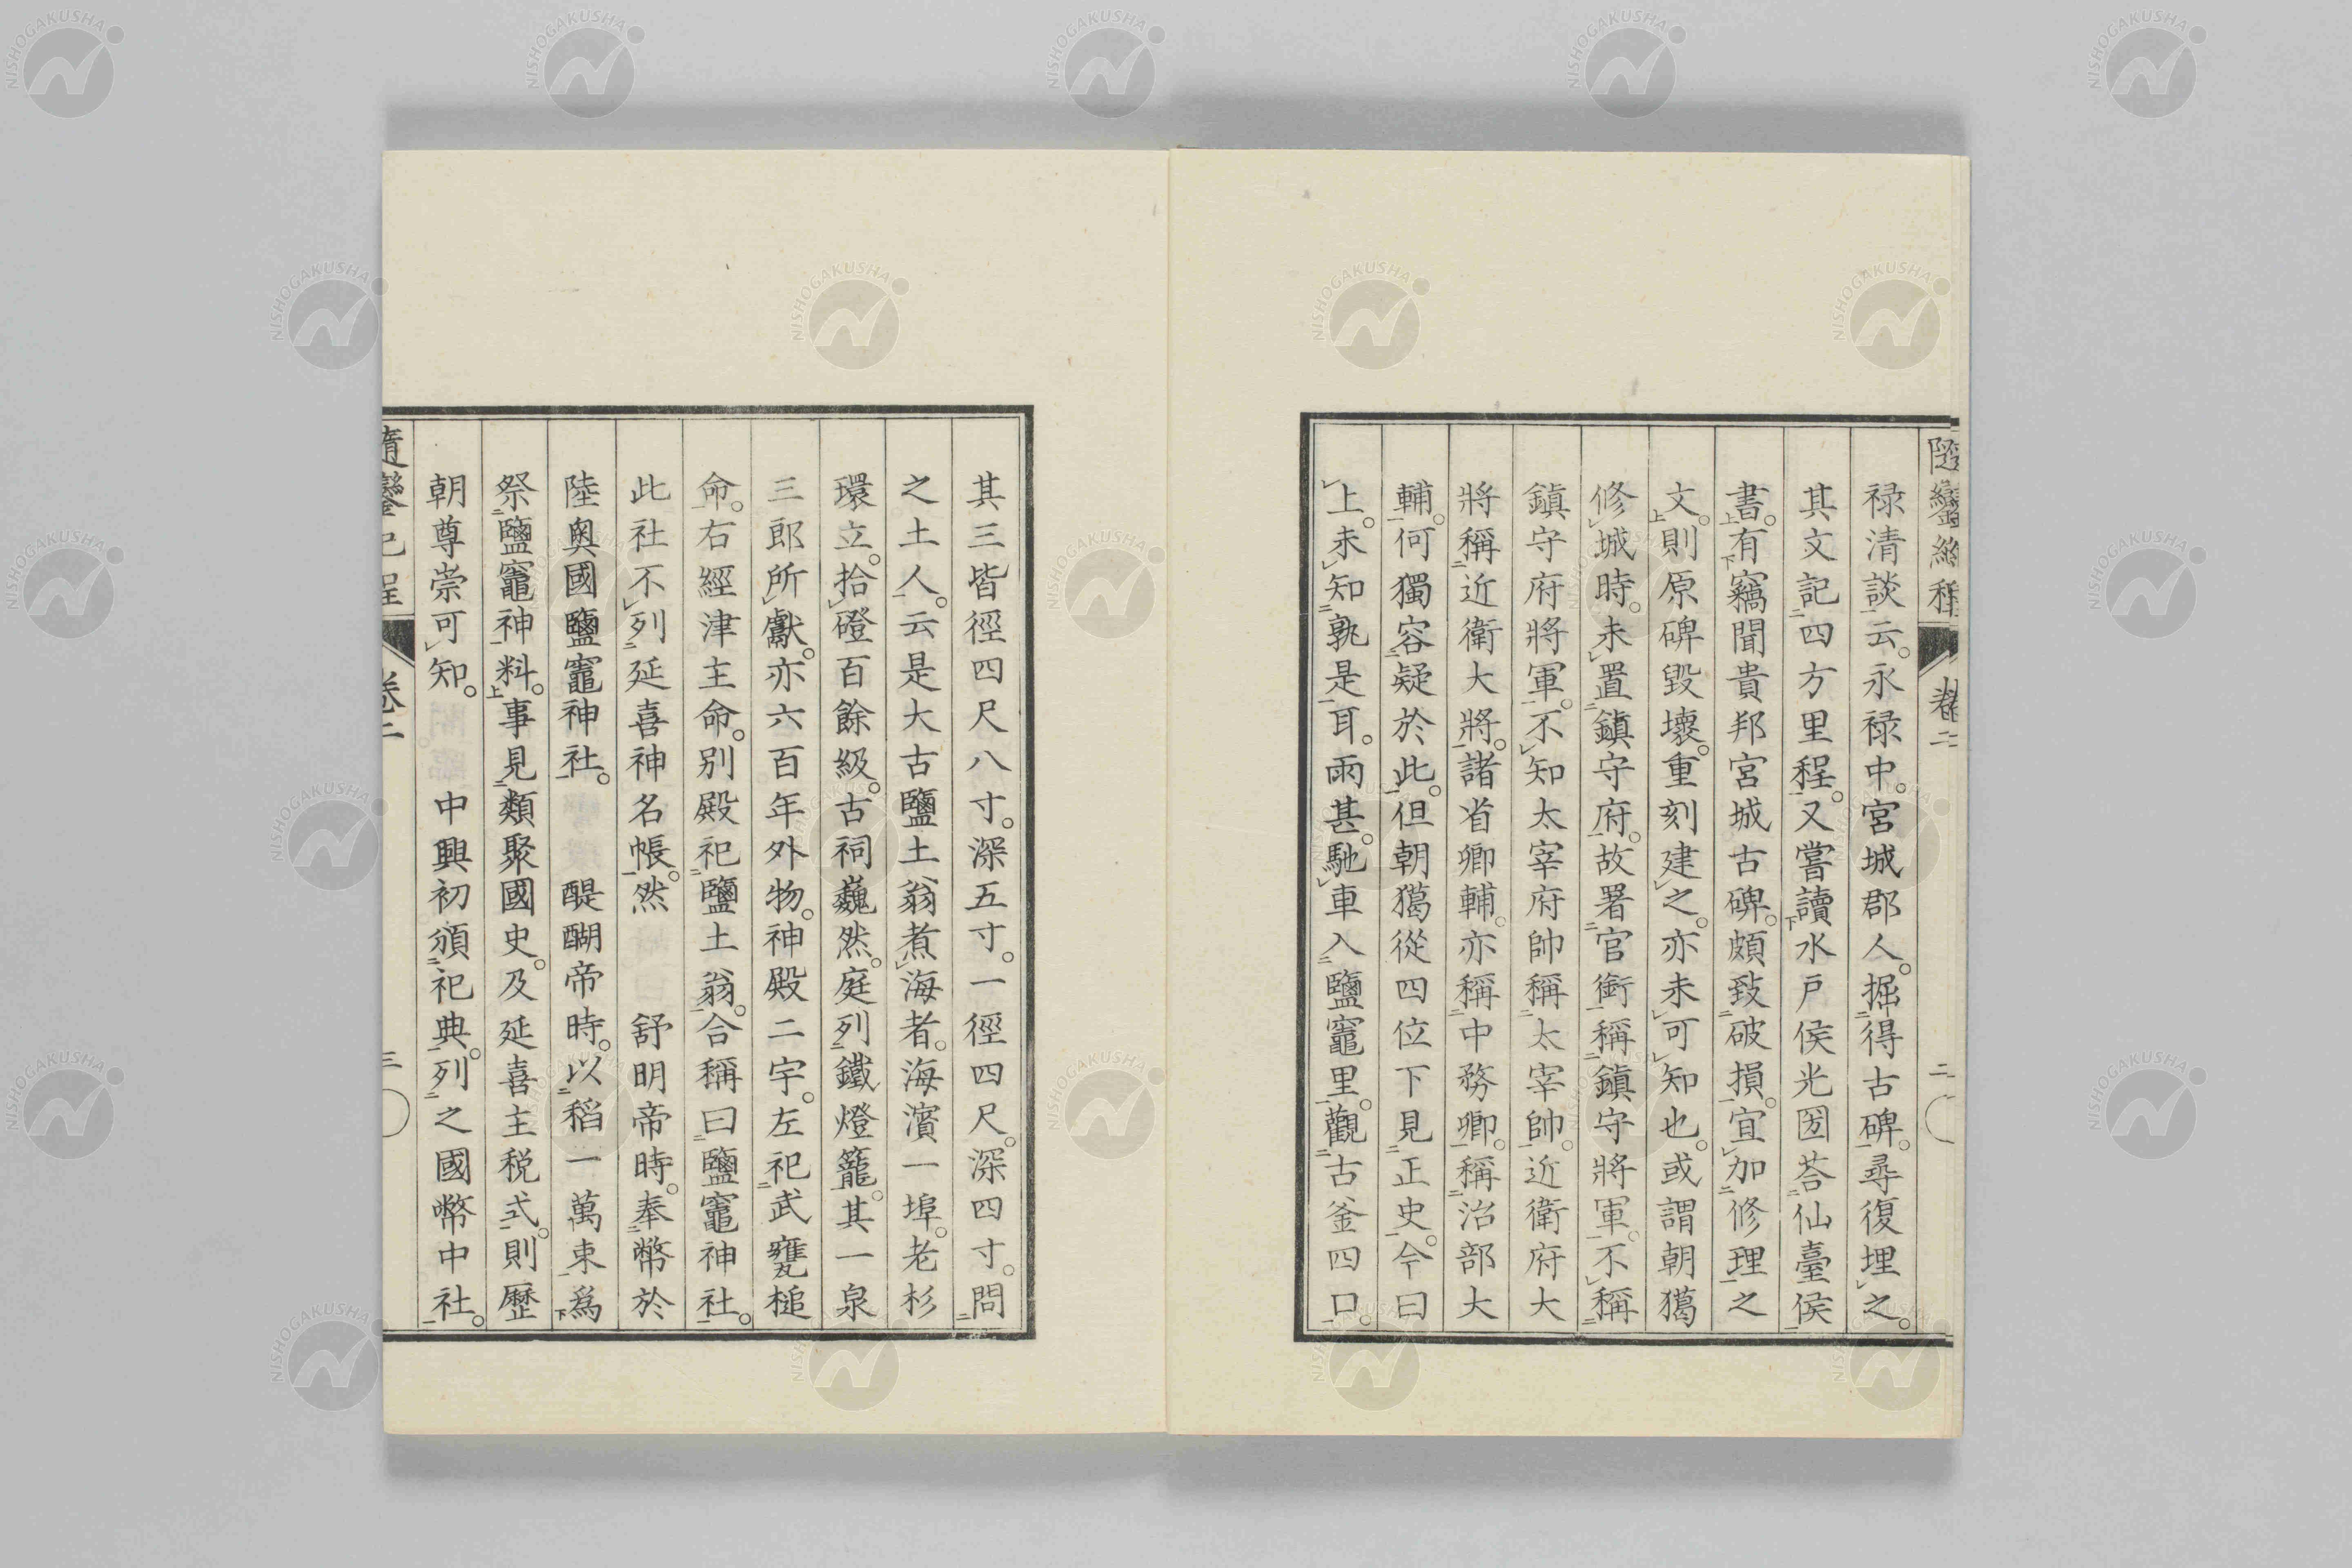 隨鑾紀程 卷二 二
禄清談云。永禄中。宮城郡人。掘得古碑。尋復埋之。
其文記四方里程。又嘗讀水戶侯光圀荅仙臺侯
書。有竊聞貴邦宮城古碑。頗致破損。宜加修理之
文。則原碑毀壞。重刻建之。亦未可知也。或謂朝獦
修城時。未置鎮守府。故署官銜稱鎮守將軍。不稱
鎮守府將軍。不知太宰府帥稱太宰帥。近衛府大
將稱近衛大將。諸省卿輔。亦稱中務卿。稱治部大
輔。何獨容疑於此。但朝獦從四位下見正史。今曰
上。未知孰是耳。雨甚。馳車入鹽竈里。觀古釜四口。
其三皆徑四尺八寸。深五寸。一徑四尺。深四寸。問
之土人。云是大古鹽土翁煮海者。海濱一埠。老杉
環立。拾磴百餘級。古祠巍然。庭列鐵燈籠。其一泉
三郎所獻。亦六百年外物。神殿二宇。左祀武甕槌
命。右經津主命。別殿祀鹽土翁。合稱曰鹽竈神社。
此社不列延喜神名帳。然 舒明帝時。奉幣於
陸奧國鹽竈神社。 醍醐帝時。以稻一萬束為
祭鹽竈神料。事見類聚國史。及延喜主税式。則歷
朝尊崇可知。 中興初頒祀典。列之國幣中社。
隨鑾紀程 卷二 三